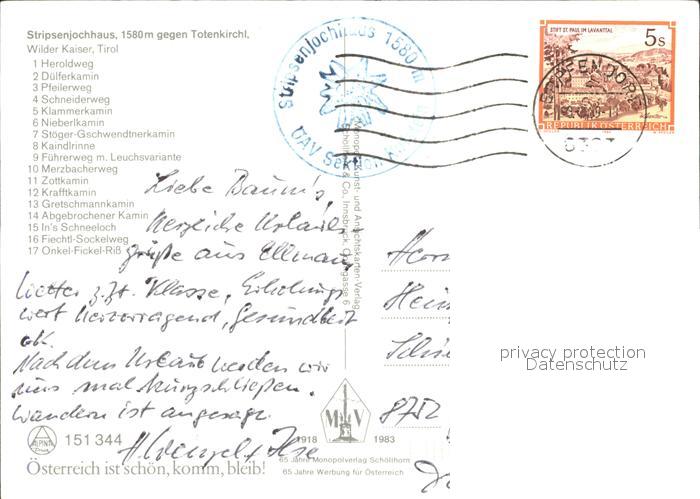 Stripsenjochhaus, 1580m gegen Totenkirchl,
Wilder Kaiser, Tirol
1 Heroldweg
2 Dülferkamin
3 Pfeilerweg
4 Schneiderweg
5 Klammerkamin
6 Nieberlkamin
7 Stöger-Gschwendtnerkamin
8 Kaindlrinne
9 Führerweg m. Leuchsvariante
10 Merzbacherweg
11 Zottkamin
12 Krafftkamin
13 Gretschmannkamin
14 Abgebrochener Kamin
15 In's Schneeloch
16 Fiechtl-Sockelweg
17 Onkel-Fickel-Riß
Stripsenjochhaus 1580 m
ÖAV Sektion
STIFT ST. PAUL IM LAVANTTAL
5 S
REPUBLIK ÖSTERREICH
Liebe Baum's,
Herzliche Urlaubs-
grüße aus Ellmau,
Wetter z.Zt. Klasse, Erholungs
wert hervorragend, Gesundheit
ok.
Nach dem Urlaub werden wir
uns mal kurzschließen.
Wandern ist angesagt.
Ilse
8752
privacy protection
Datenschutz
ALPINA
Druck
151 344
Österreich ist schön, komm, bleib!
M V
1918 1983
65 Jahre Monopolverlag Schöllhorn
65 Jahre Werbung für Österreich
Monopol Kunst- und Ansichtskarten-Verlag
Schöllhorn & Co., Innsbruck,